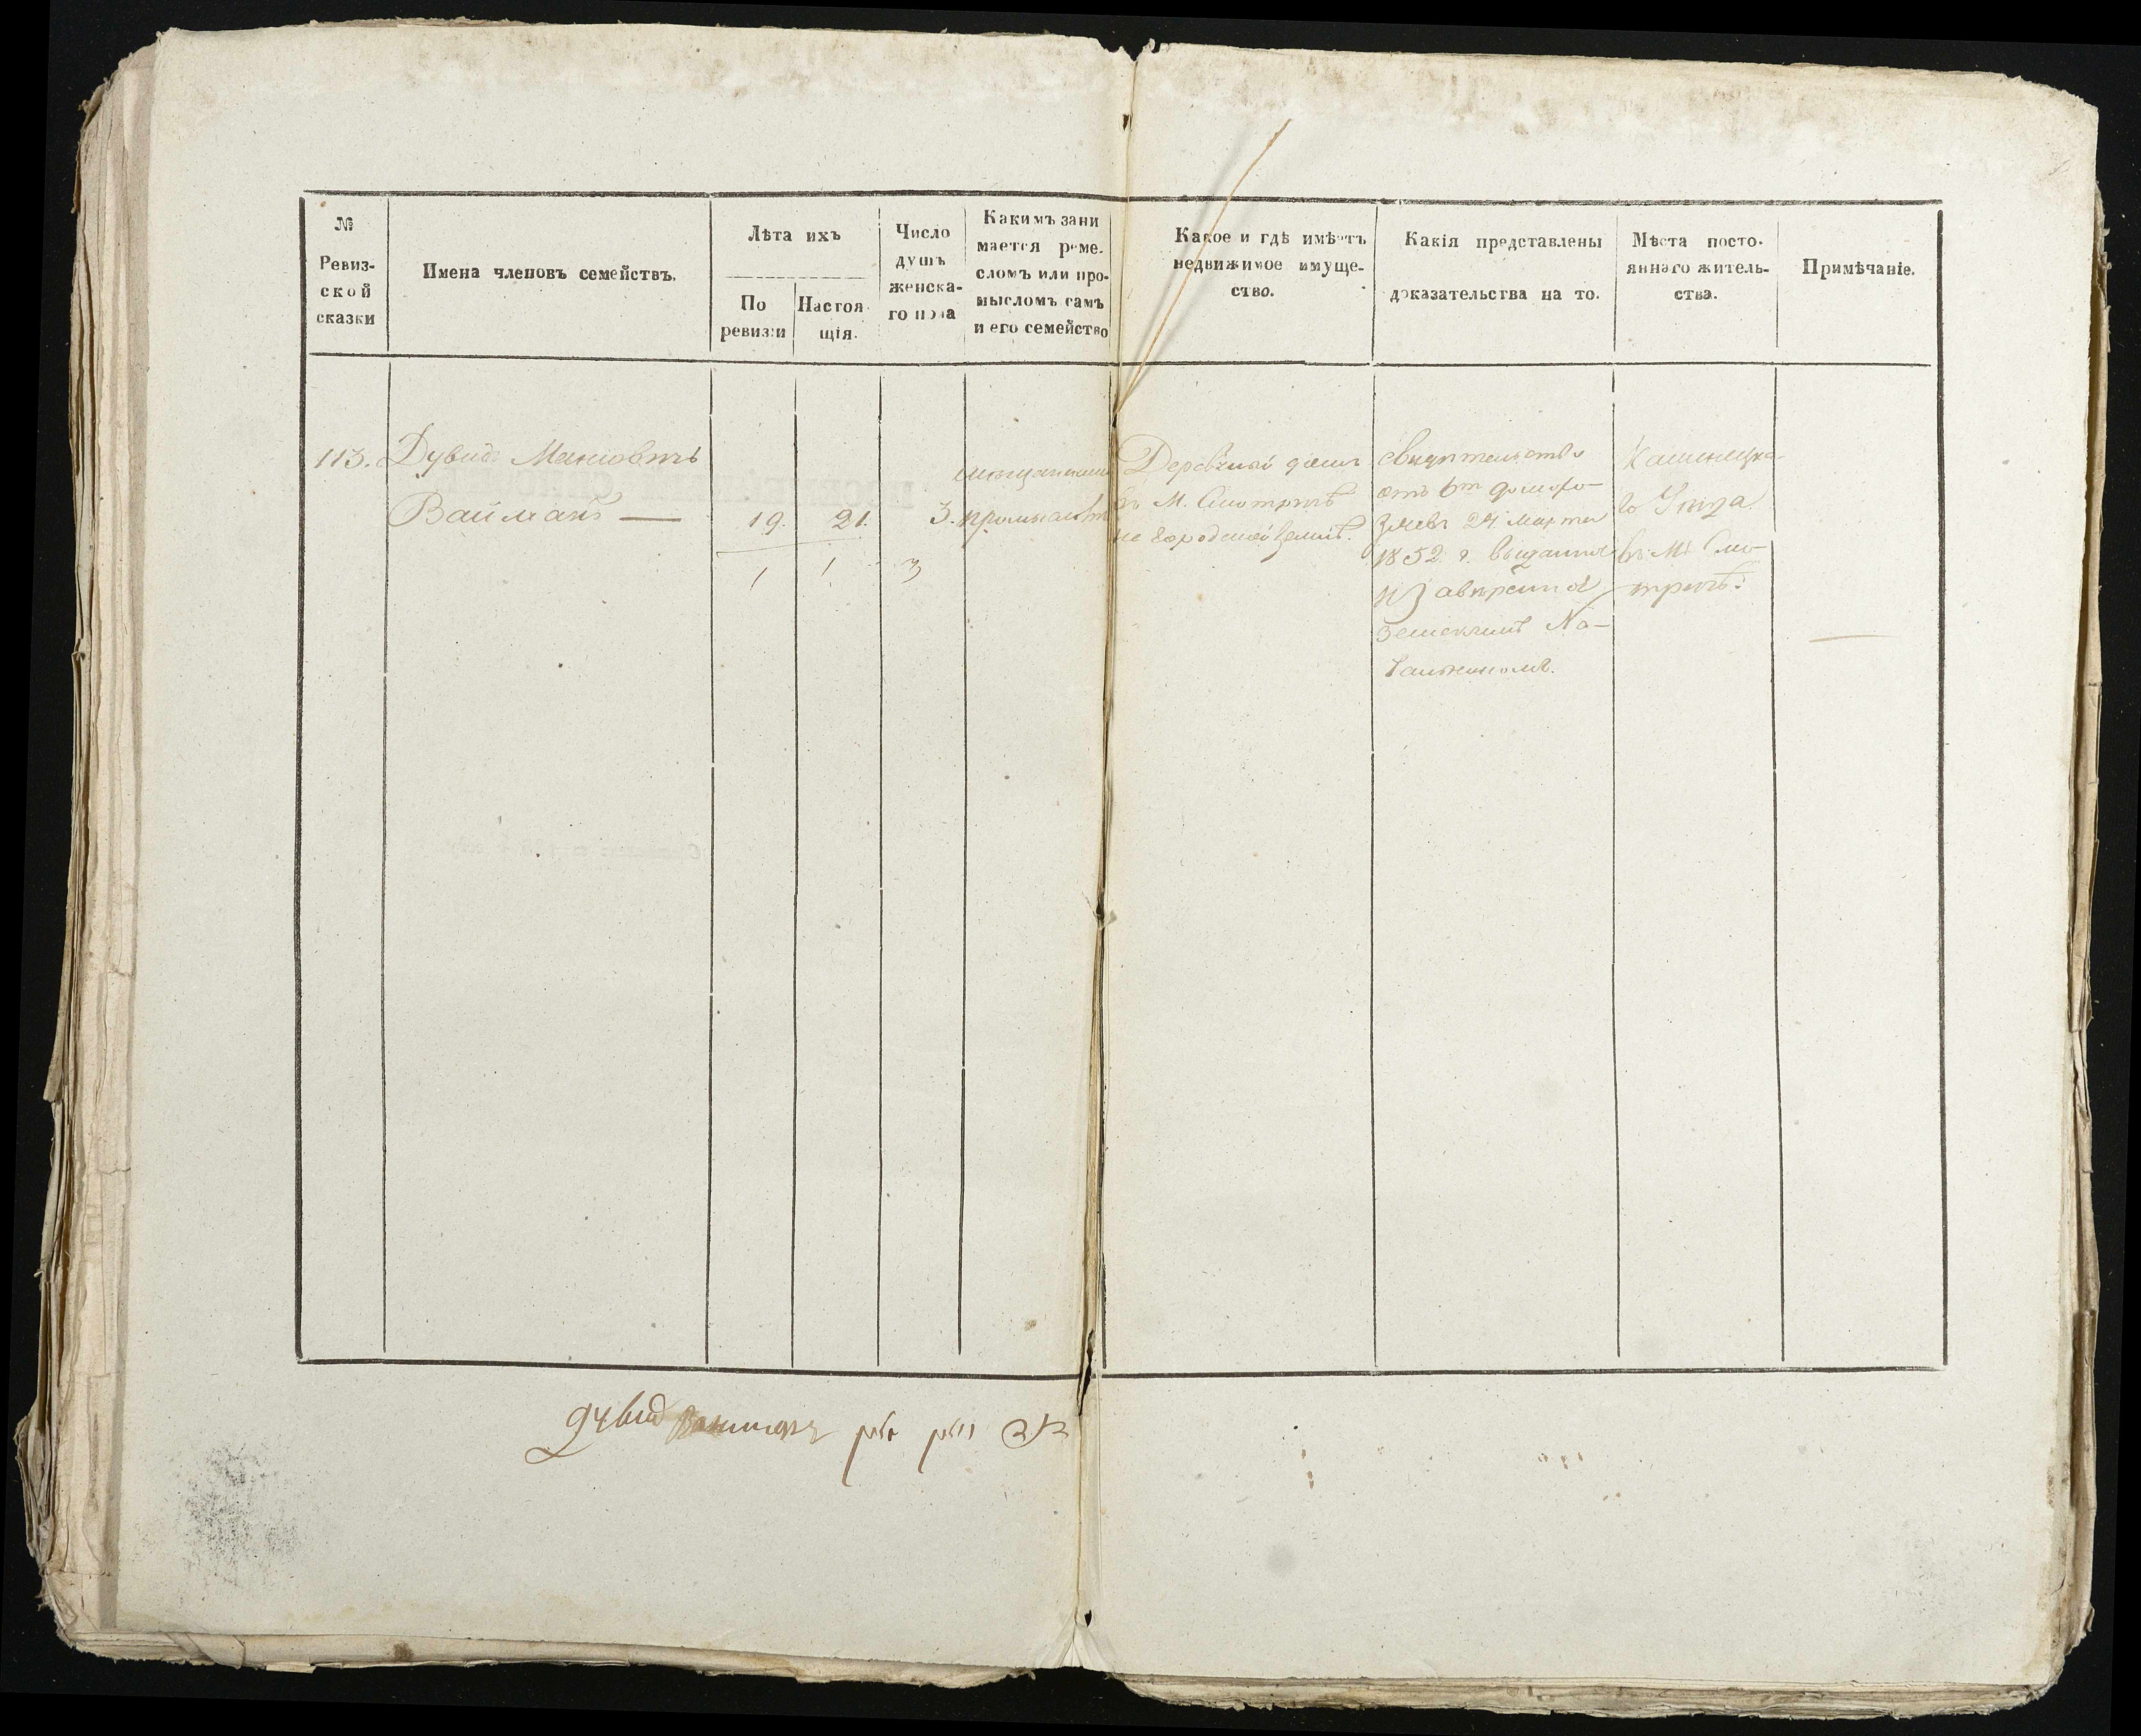 №
Ревиз-
ской
сказки
Имена членовъ семействъ.
Лѣта ихъ
По
ревизіи
Настоя
щія.
Число
душъ
женска-
го пола
Какимъ зани
мается реме-
сломъ или про-
мысломъ самъ
и его семейство
Какое и гдѣ имѣетъ
недвижимое имуще-
ство.
Какія представлены
доказательства на то.
Мѣста посто-
яннаго житель-
ства.
Примѣчаніе.
113.
Дувидъ
Вайманъ —
19.
21.
3.
1
1
3
Деревяный домъ
въ М. Смотричѣ
на городской землѣ.
свидѣтельство
отъ 6ти домохо-
зяевъ 24 Марта
1852 г. выданное
и завѣренное
Земскимъ На-
чальникомъ.
Каменецка-
го Уѣзда
въ М. Смо-
тричѣ.
Дувид Вайман